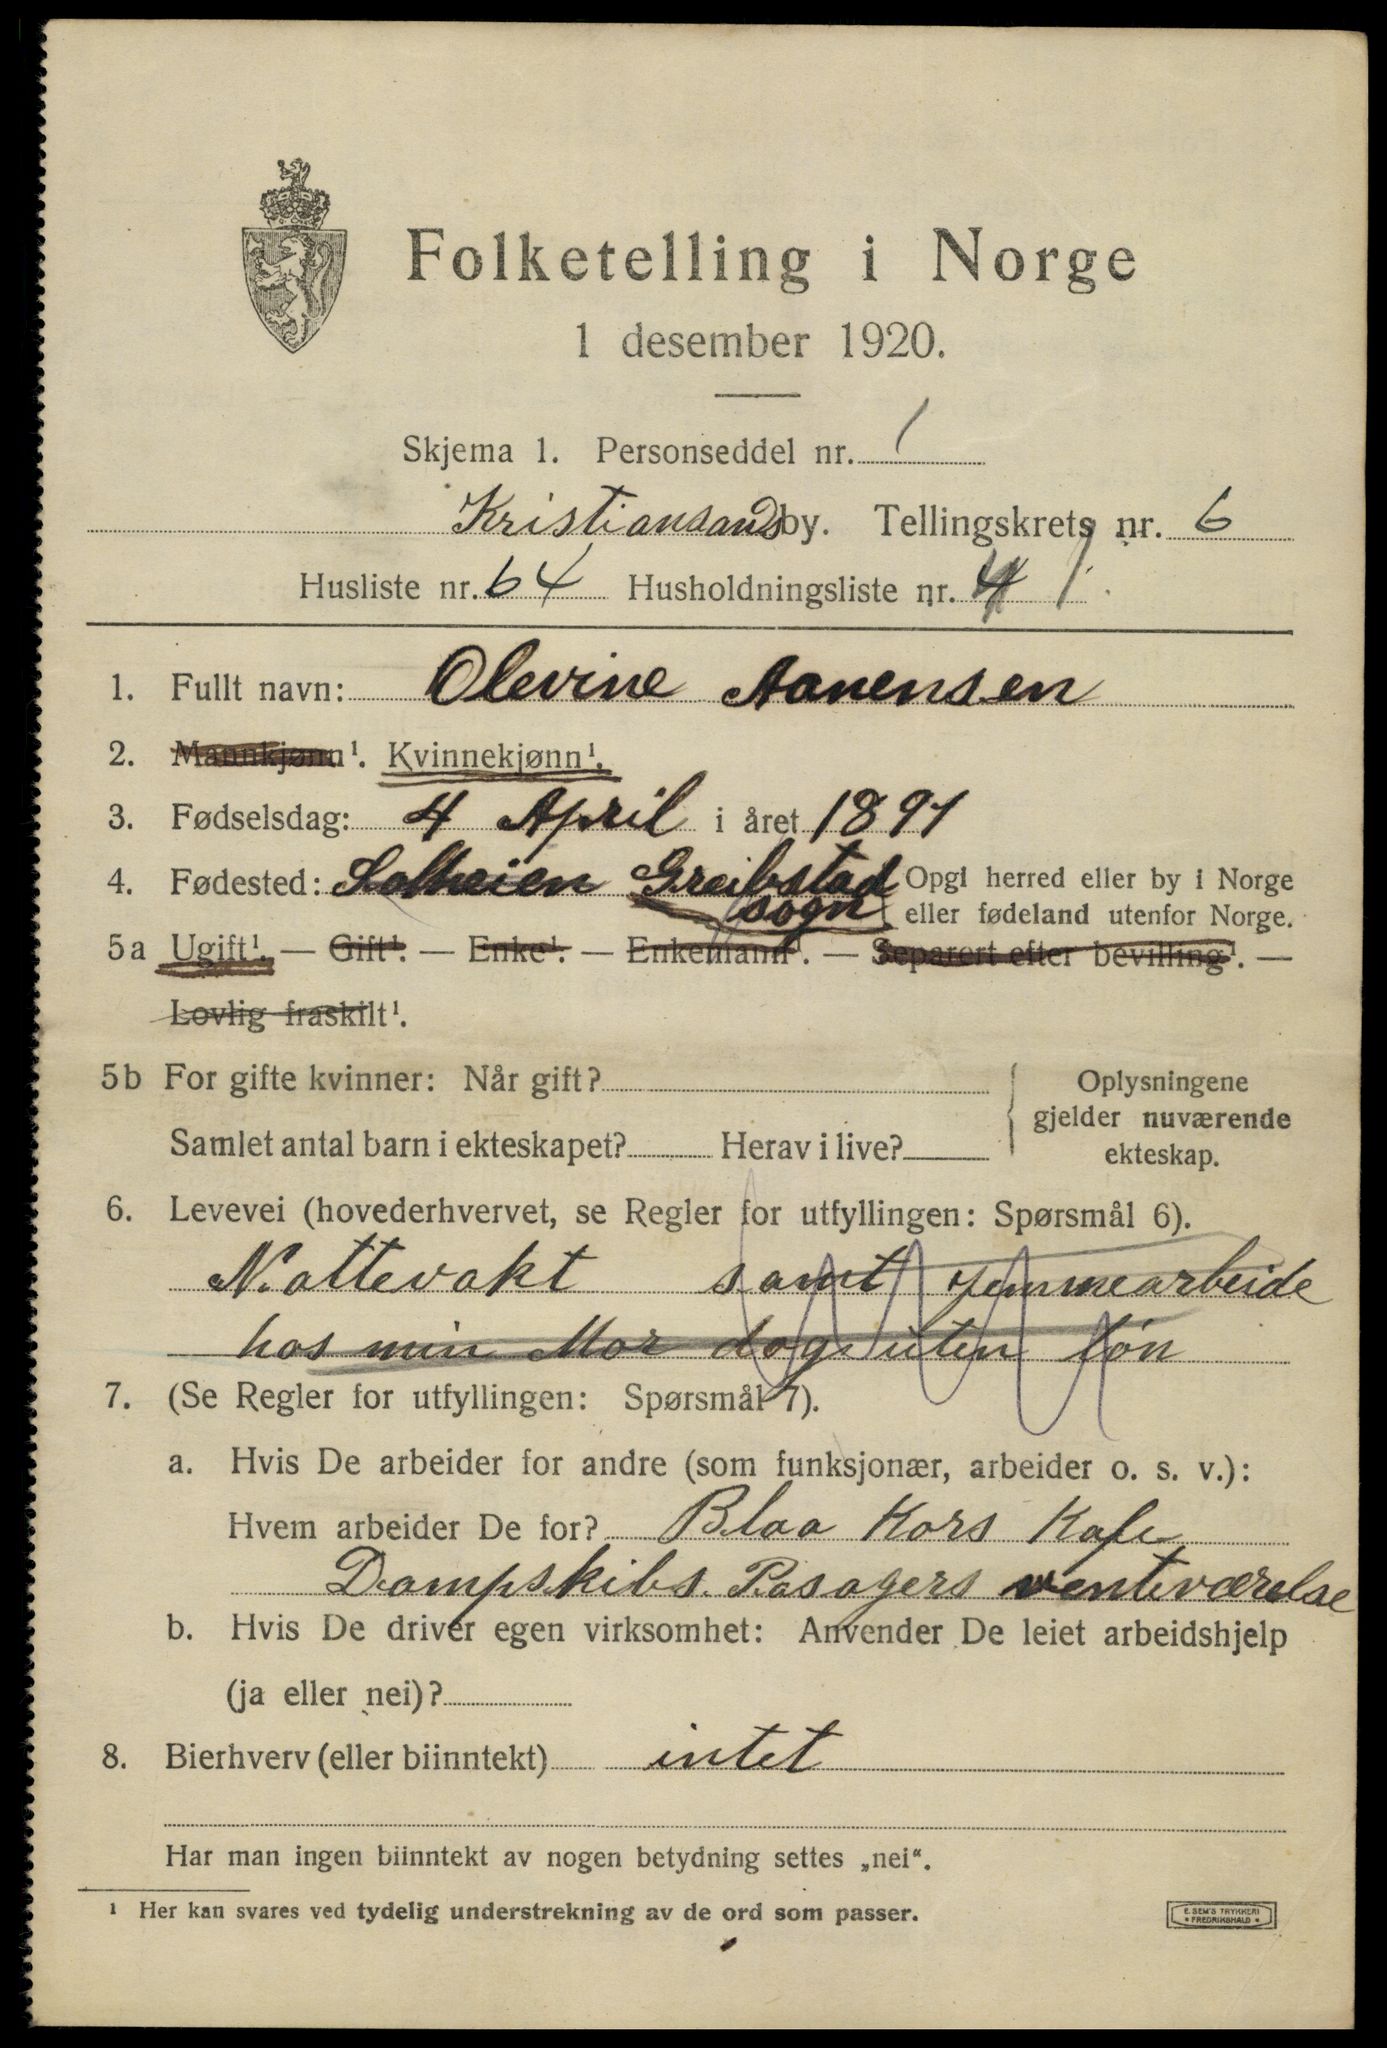 Folketelling i Norge
1 desember 1920.
Skjema 1. Personseddel nr. 1
Kristiansands by. Tellingskrets nr. 6
Husliste nr. 64 Husholdningsliste nr. 4 1
1. Fullt navn: Olevine Aanensen
2. Mannkjønn¹. Kvinnekjønn¹.
3. Fødselsdag: 4 April i året 1891
4. Fødested: Solheien Greibstad Opgi herred eller by i Norge
sogn eller fødeland utenfor Norge.
5a Ugift¹. — Gift¹. — Enke¹. — Enkemann¹. — Separert efter bevilling¹. —
Lovlig fraskilt¹.
5b For gifte kvinner: Når gift?
Samlet antal barn i ekteskapet? Herav i live?
Oplysningene
gjelder nuværende
ekteskap.
6. Levevei (hovederhvervet, se Regler for utfyllingen: Spørsmål 6).
Nattevakt samt jemmearbeide
hos min Mor dog uten løn
7. (Se Regler for utfyllingen: Spørsmål 7).
a. Hvis De arbeider for andre (som funksjonær, arbeider o. s. v.):
Hvem arbeider De for? Blaa Kors Kafe
Dampskibs Pasagers venteværelse
b. Hvis De driver egen virksomhet: Anvender De leiet arbeidshjelp
(ja eller nei)?
8. Bierhverv (eller biinntekt) intet
Har man ingen biinntekt av nogen betydning settes „nei“.
¹ Her kan svares ved tydelig understrekning av de ord som passer.
E. SEM'S TRYKKERI
* FREDRIKSHALD *